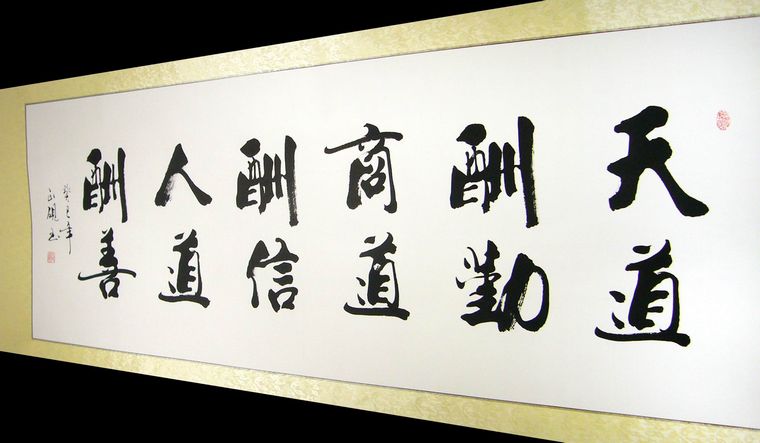 天道
酬勤
商道
酬信
人道
酬善
癸巳年